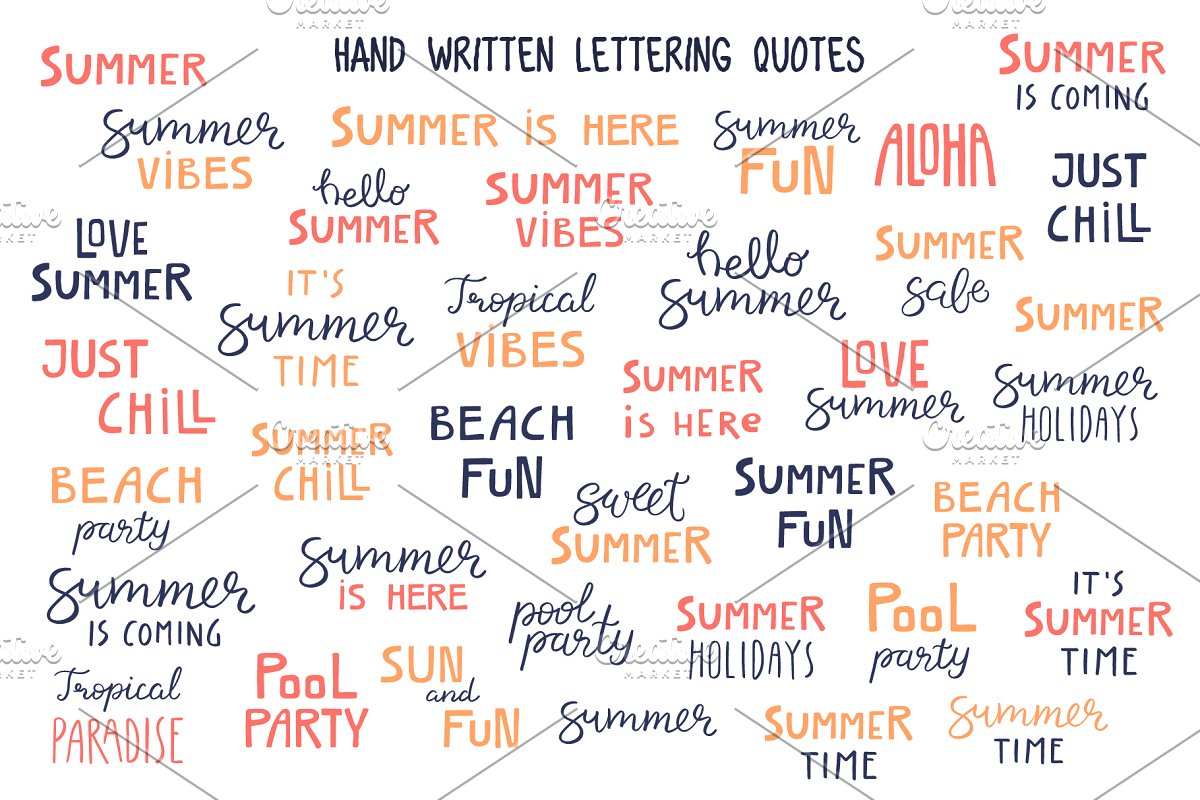 Creative
MARKET
HAND WRITTEN LETTERING QUOTES
SUMMER
SUMMER
IS COMING
Summer
VIBES
SUMMER IS HERE
Summer
FUN
ALOHA
JUST
CHILL
hello
SUMMER
SUMMER
VIBES
Creative
MARKET
LOVE
SUMMER
IT'S
Summer
TIME
Tropical
VIBES
hello
Summer
SUMMER
sale
SUMMER
JUST
CHILL
SUMMER
IS HERE
LOVE
Summer
Summer
HOLIDAYS
Creative
MARKET
SUMMER
CHILL
Creative
MARKET
BEACH
FUN
BEACH
party
sweet
SUMMER
SUMMER
FUN
BEACH
PARTY
Summer
IS COMING
Summer
IS HERE
pool
party
SUMMER
HOLIDAYS
Creative
MARKET
POOL
party
IT'S
SUMMER
TIME
Tropical
PARADISE
POOL
PARTY
SUN
and
FUN
Summer
SUMMER
TIME
Summer
TIME